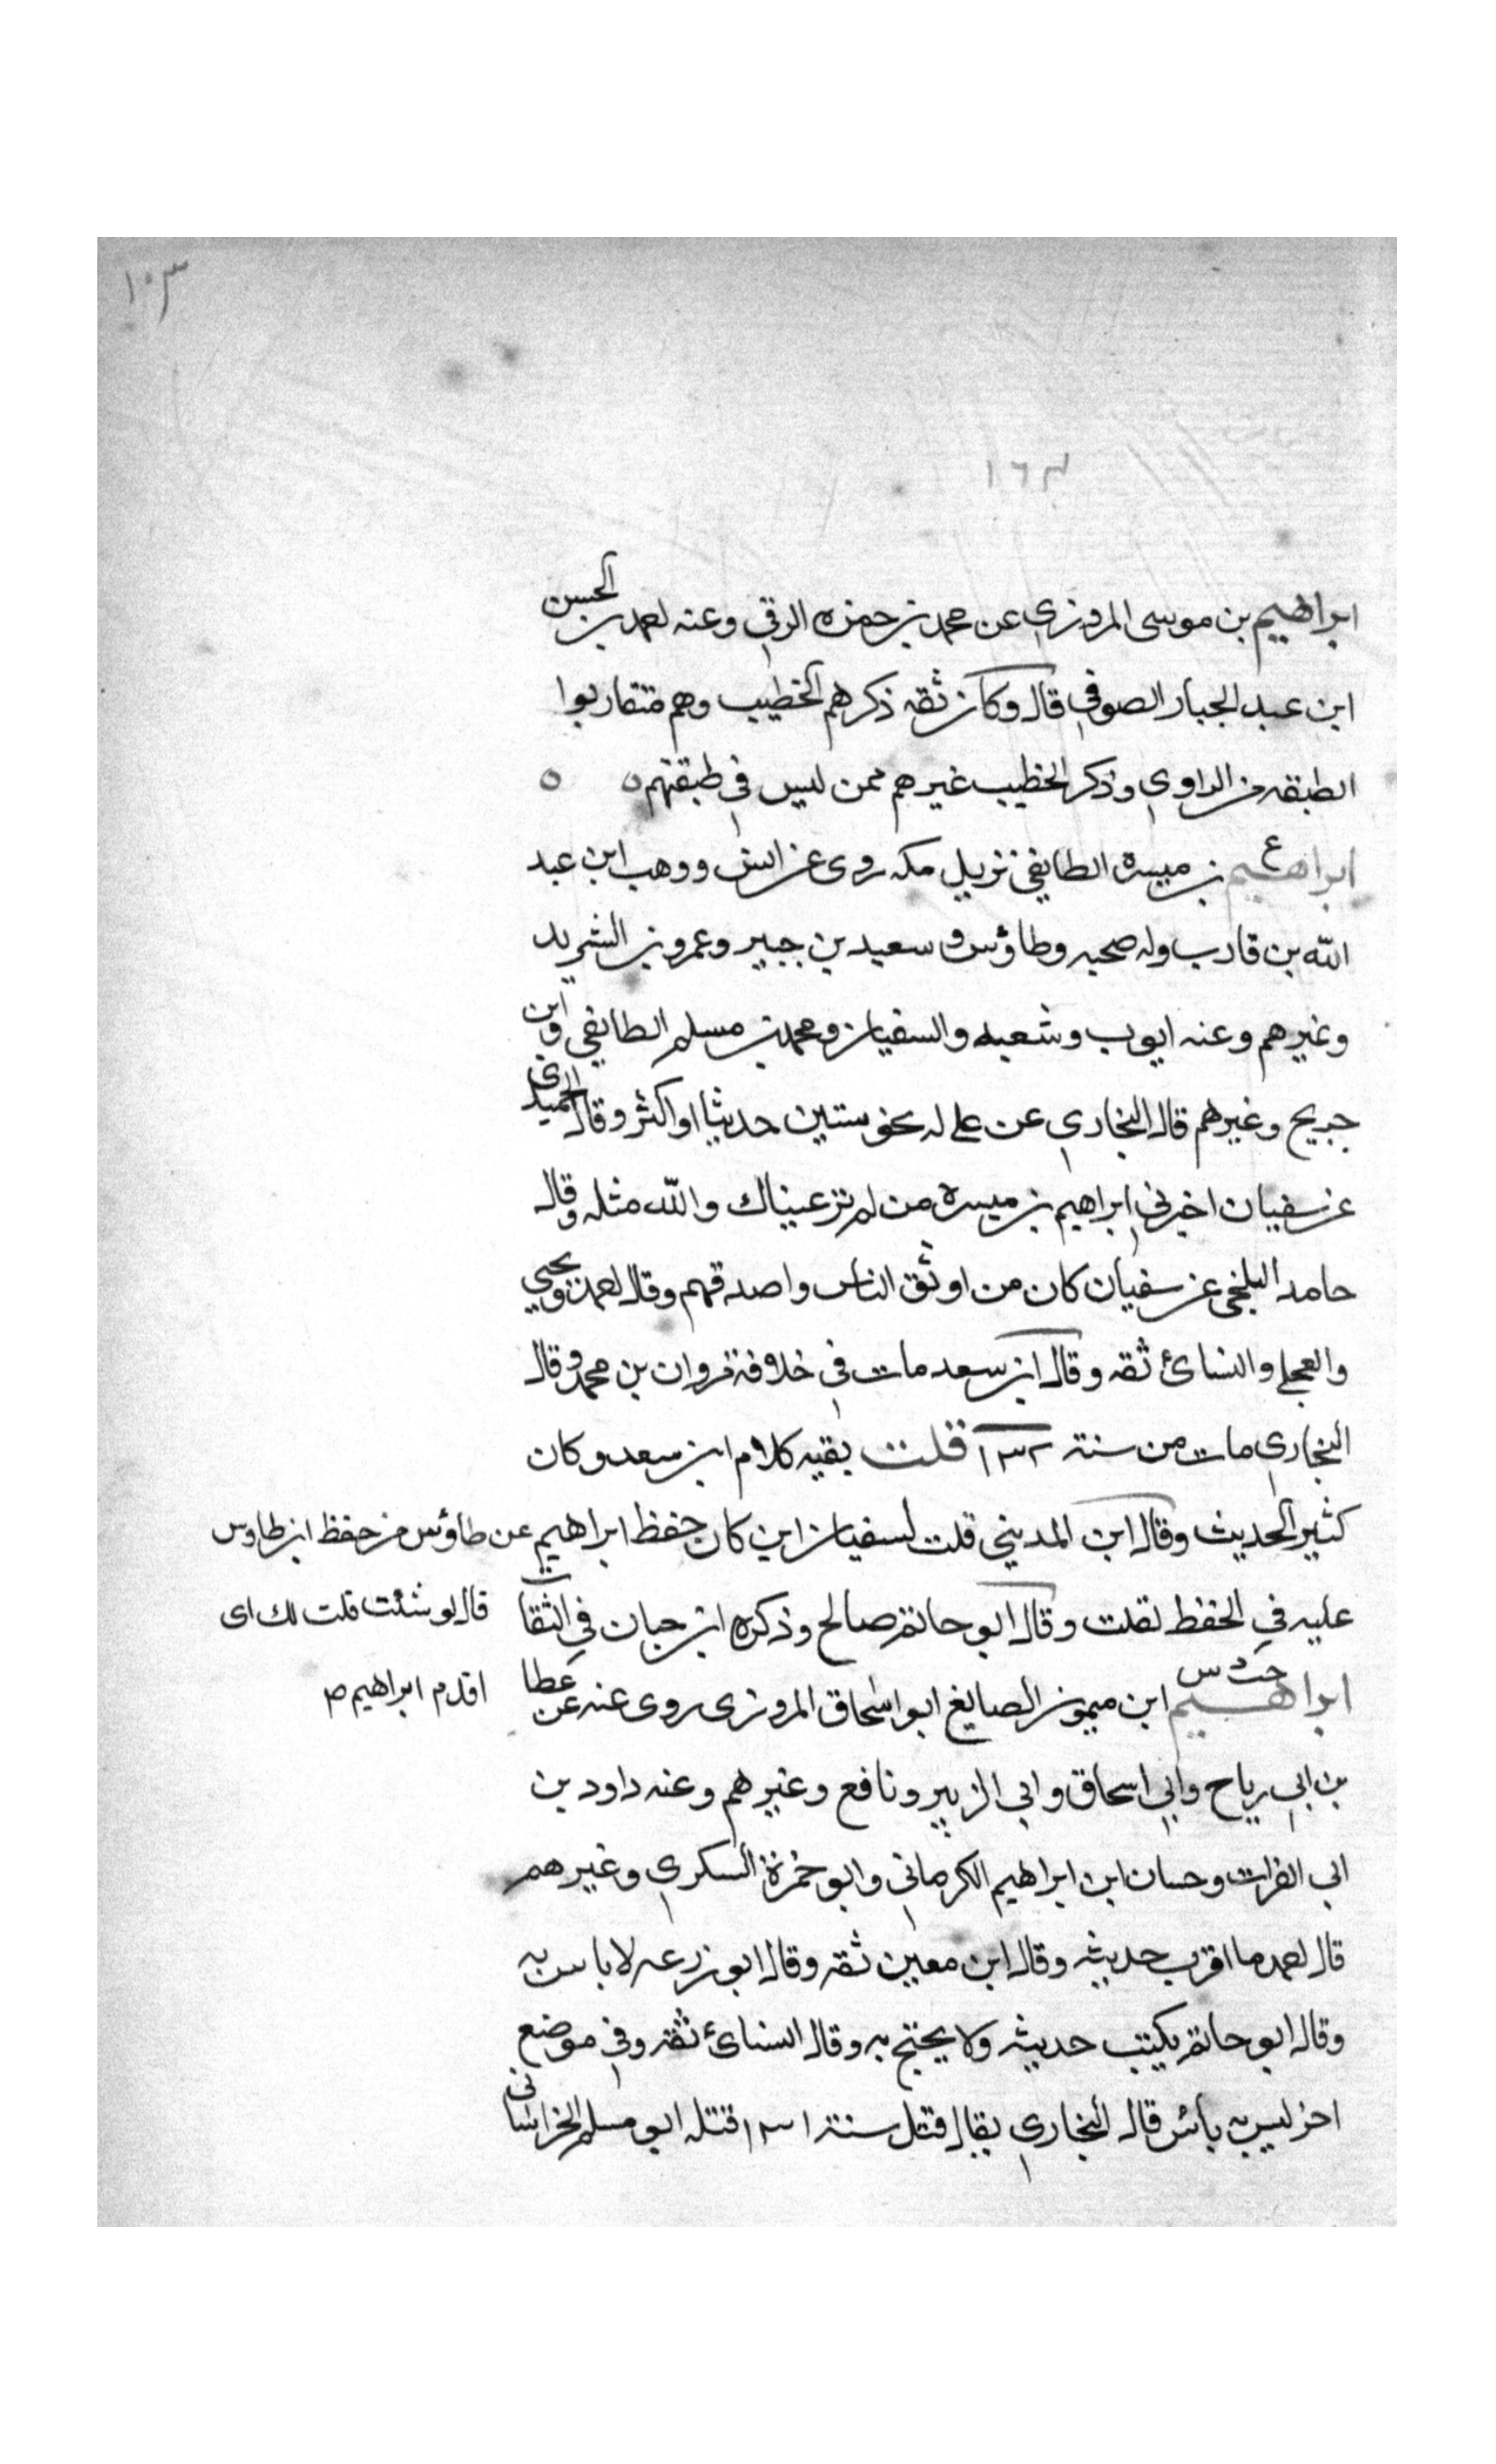 ١٠٣
١٦٣
ابراهيم بن موسى المروزي عن محمد بن حمزه الرقي وعنه احمد بن الحسن
ابن عبد الجبار الصوفي قال وكان ثقه ذكرهم الخطيب وهم متقاربوا
الطبقه من الراوي وذكر الخطيب غيرهم ممن ليس في طبقتهم ٥ ٥
ع
ابراهيم بن ميسرة الطايفي نزيل مكه روى عن انس ووهب ابن عبد
الله بن قارب وله صحبه وطاؤس وسعيد بن جبير وعمرو بن الشريد
وغيرهم وعنه ايوب وشعبه والسفيان ومحمد بن مسلم الطايفي وابن
جريج وغيرهم قال البخاري عن علي له نحو ستين حديثا او اكثر وقال الحميدي
عن سفيان اخبرني ابراهيم بن ميسرة من لم تر عيناك والله مثله وقال
حامد البلخي عن سفيان كان من اوثق الناس واصدقهم وقال احمد ويحيي
والعجلي والنسائ ثقه وقال ابن سعد مات في خلافة مروان بن محمد وقال
البخاري مات من سنة ١٣٢ قلت بقيه كلام ابن سعد وكان
كثير الحديث وقال ابن المديني قلت لسفيان اين كان حفظ ابراهيم عن طاؤس من حفظ ابن طاوس
قال لو شئت قلت لك اى
اقدم ابراهيم ص
عليه في الحفظ لقلت وقال ابو حاتم صالح وذكره ابن حبان في الثقات
خت د س
ابراهيم ابن ميمون الصايغ ابو اسحاق المروزى روى عنه عن عطا
بن ابي رياح وابي اسحاق وابي الزبير ونافع وغيرهم وعنه داود بن
ابي الفرات وحسان ابن ابراهيم الكرماني وابو حمزة السكري وغيرهم
قال احمد ما اقرب حديثه وقال ابن معين ثقه وقال ابو زرعه لا باس به
وقال ابو حاتم يكتب حديثه ولا يحتج به وقال النسائ ثقه وفي موضع
اخر ليس به بأس قال البخاري يقال قتل سنة ١٣١ قتله ابو مسلم الخراساني